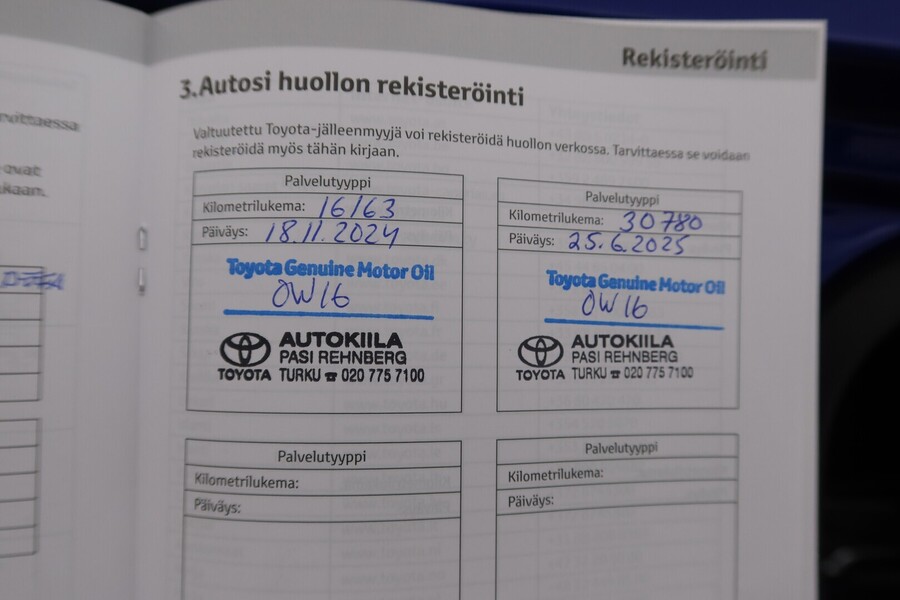 Rekisteröinti
3. Autosi huollon rekisteröinti
Valtuutettu Toyota-jälleenmyyjä voi rekisteröidä huollon verkossa. Tarvittaessa se voidaan
rekisteröidä myös tähän kirjaan.
Palvelutyyppi
Kilometrilukema: 16163
Päiväys: 18.11.2024
Toyota Genuine Motor Oil
0W16
AUTOKIILA
PASI REHNBERG
TOYOTA TURKU ☎ 020 775 7100
Palvelutyyppi
Kilometrilukema: 30780
Päiväys: 25.6.2025
Toyota Genuine Motor Oil
0W16
AUTOKIILA
PASI REHNBERG
TOYOTA TURKU ☎ 020 775 7100
Palvelutyyppi
Kilometrilukema:
Päiväys:
Palvelutyyppi
Kilometrilukema:
Päiväys: